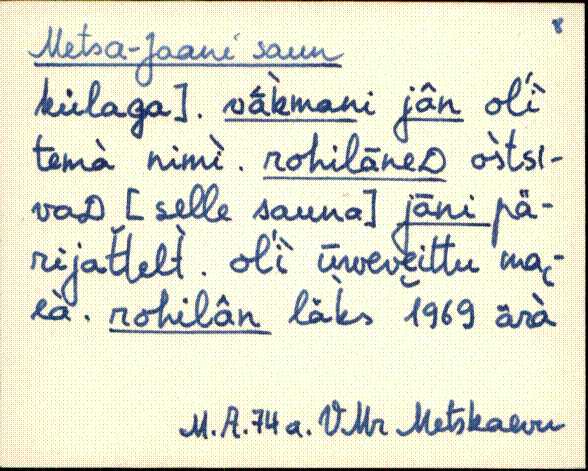 8
Metsa-Jaani saun
külaga]. vǟkmani jân oĺì
temà nimì. rohilāneD òstsi-
vaD [selle sauna] jāni pä-
rijattelt̀. oĺì ūrveveittu ma-
eà. rohilân läks 1969 ärà
M.A.74 a. VMr Metskaevu